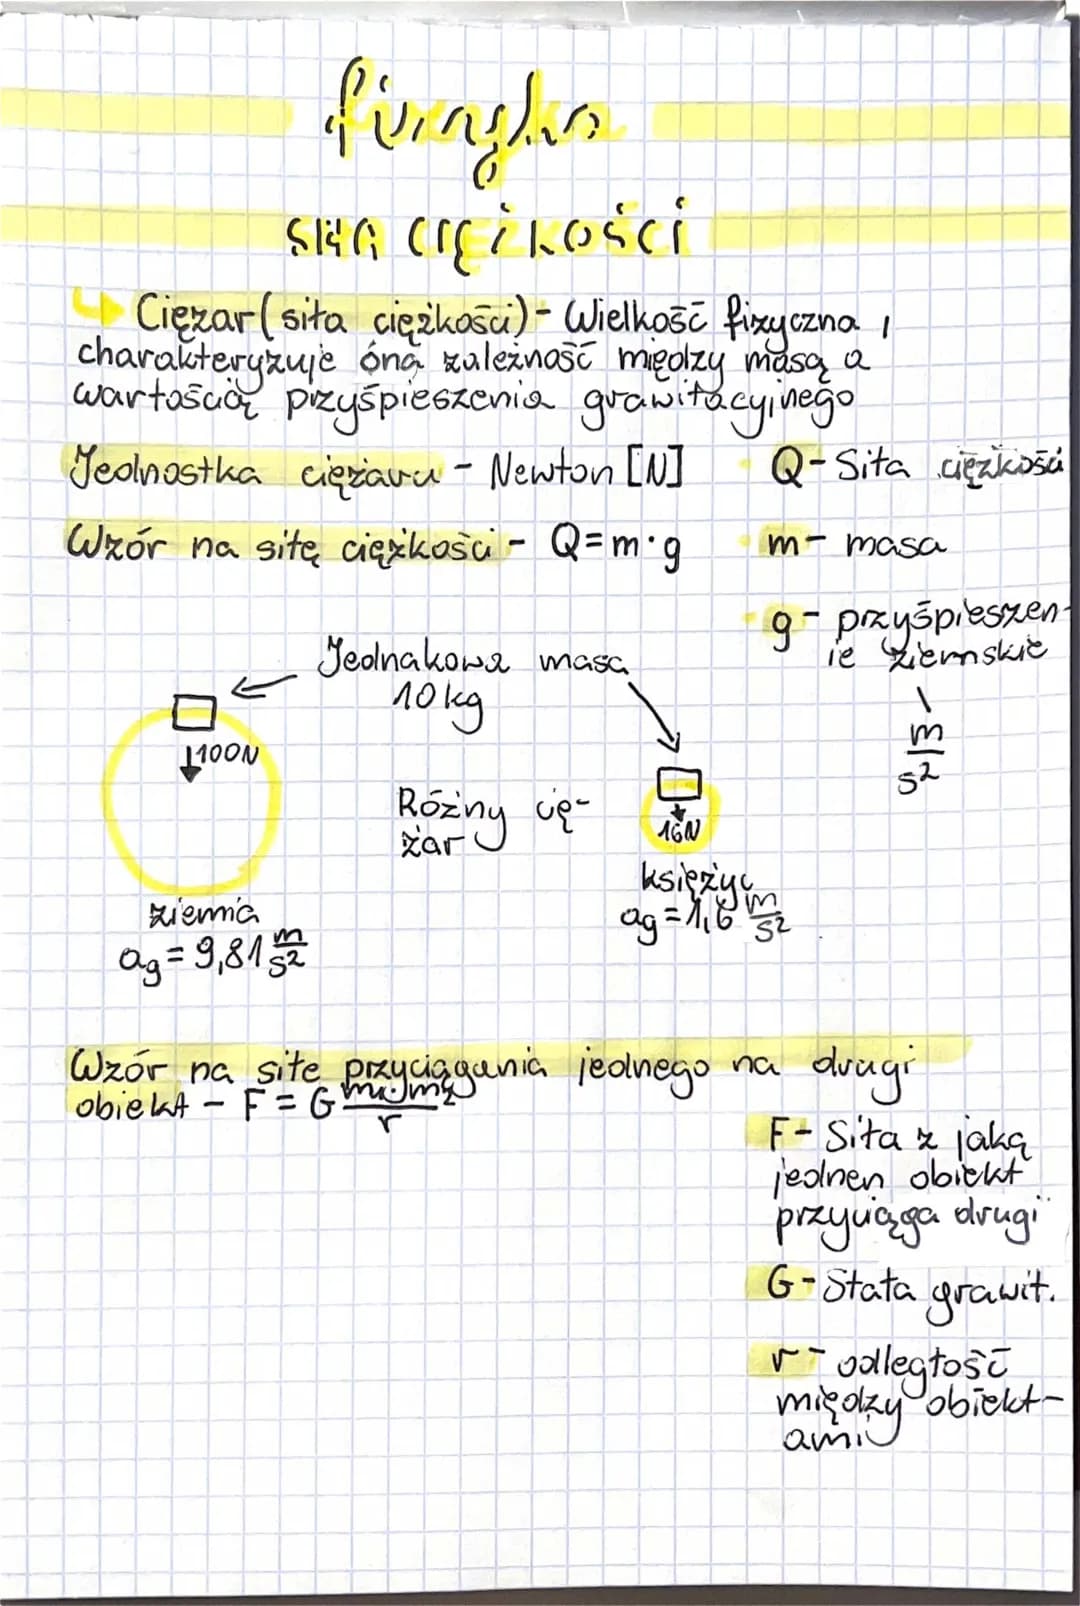 fizyka
SIŁA CIĘŻKOŚCI
Ciężar (siła ciężkości) - Wielkość fizyczna,
charakteryzuje óną zależność między masą a
wartością przyśpieszenia grawitacyjnego
Jednostka ciężaru - Newton [N]
Q - Siła ciężkości
Wzór na siłę ciężkości - Q=m·g
m - masa
g - przyśpieszen-
ie ziemskie
m/s²
Jednakowa masa
10 kg
↓100N
Różny cię-
żar
16N
ziemia
ag = 9,81 m/s²
księżyc
ag = 1,6 m/s²
Wzór na siłe przyciągania jednego na drugi
obiekt - F = G m₁·m₂/r
F - Siła z jaką
jednen obiekt
przyciąga drugi
G - Stała grawit.
r - odległość
między obiekt-
ami